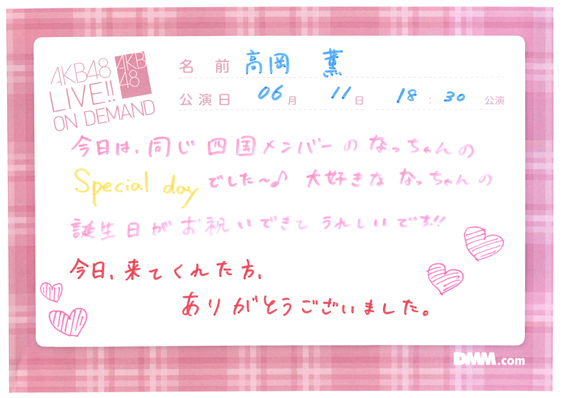 AKB48
LIVE!!
ON DEMAND
AKB
48
名 前 高岡 薫
公演日 06月 11日 18:30 公演
今日は、同じ四国メンバーのなっちゃんの
Special dayでした〜♪ 大好きななっちゃんの
誕生日がお祝いできてうれしいです!!
今日、来てくれた方、
ありがとうございました。
DMM.com